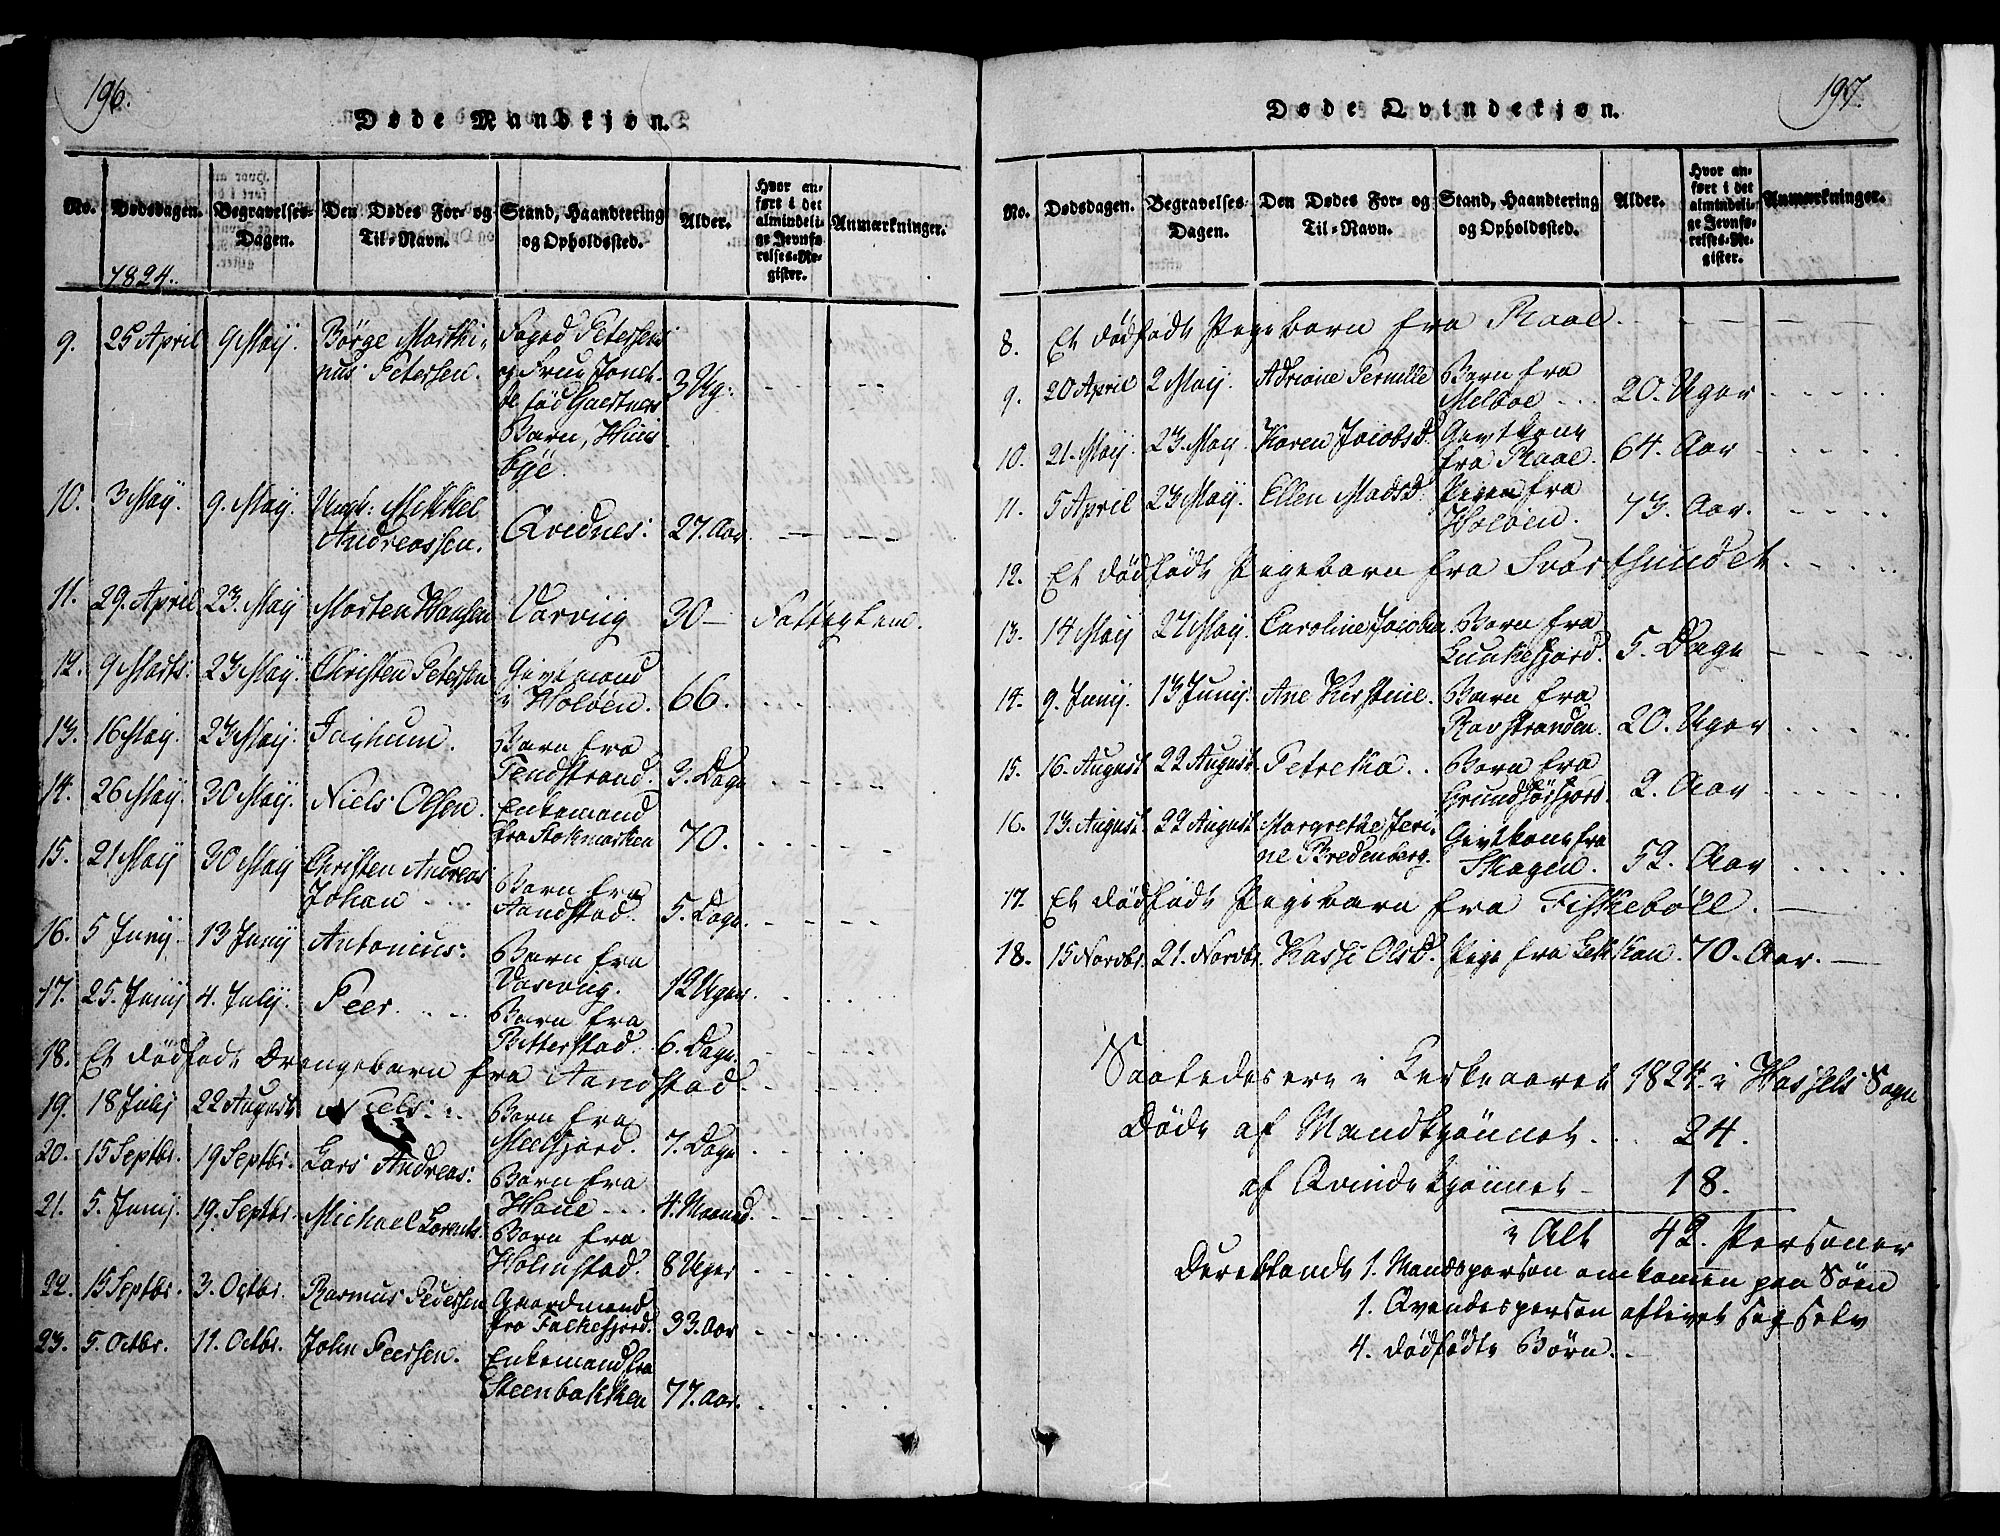 196.
Døde Mandkjøn.
No. Dødsdagen. Begravelses-Dagen. Den Dødes For- og Til-Navn. Stand, Haandtering og Opholdssted. Alder. Hvor anført i det almindelige Jevnførelses-Register. Anmærkninger.
1824.
9. 25 April 9 Maij. Börge Marthi-
nus Petersen. Foged Petersens
og Frue
fød Gaertners 3 Ug:
Barn,
bye.
10. 3 Maij. 9. Maij. Ungk: Mikkel
Andreassen. Qvidnes: 27. Aar
11. 29. April 23. Maij Morten Hansen Vorviig 30 — Fattiglem.
12. 9 Marts: 23 Maij. Christen Petersen Givtmand
i Holöen. 66.
13. 16 Maij. 23 Maij. Jochum. Barn fra
Tendstrand. 3. Dage
14. 26 Maij. 30 Maij. Niels Olsen. Enkemand
fra Stokmarken 70.
15. 21 Maij 30 Maij Christen Andreas
Johan Barn fra
Sandstad. 5. Dage
16. 5 Junij. 13 Junij Antonius: Barn fra
12 Uger
17. 25. Junij 4. Julij. Peer. Barn fra
Bitterstad. 6. Dage.
18. Et dödfödt Drengebarn fra Sandstad.
19. 18 Julij 22 August Niels. Barn fra
Melfjord. 7. Dage
20. 15 Septbr. 19 Septbr. Lars Andreas: Barn fra
4. Maaned.
21. 5. Junij. 19. Septbr. Michael Lorents. Barn fra
Holmstad. 8 Uger
22. 15 Septbr. 3. Octbr. Rasmus Pedersen Gaardmand
fra Falkefjord. 33. Aar
23. 5. Octbr. 11. Octbr. John Peersen. Enkemand fra
Steenbakken 77. Aar.
197.
Døde Qvindekjøn.
No. Dødsdagen. Begravelses-Dagen. Den Dødes For- og Til-Navn. Stand, Haandtering og Opholdssted. Alder. Hvor anført i det almindelige Jevnførelses-Register. Anmærkninger.
8. Et dödfödt Pigebarn fra Raae.
9. 20 April 2 Maij. Adriane Pernille Barn fra
Melboe 20. Uger
10. 21. Maij. 23. Maij Karen Jacobsd. Givtkone
fra Raae. 64. Aar
11. 5 April 23 Maij. Ellen Madsd. Pigen fra
Holöen. 73. Aar.
12. Et dödfödt Pigebarn fra Svortsundet.
13. 14 Maij 27 Maij. Caroline Barn fra
Lunkefjord. 5. Dage
14. 9. Junij. 13 Junij. Ane Kirstine. Barn fra
20. Uger
15. 16. August 22 August Petrekka Barn fra
Grundförfjord. 2. Aar
16. 13. August 22 August Margrethe
Bredenberg. Givtkone fra
Skagen. 52. Aar
17. Et dödfödt Pigebarn fra Fiskeböll.
18. 15 Novbr. 21. Novbr. Olsd. Pige fra 70. Aar.
Saaledes ere i Kirkeaaret 1824. i Hassels Sogn
Döde af Mandkjönnet 24.
af Qvindekjönnet 18.
i Alt 42. Personer
Deriblandt 1. Mandsperson omkommen paa Söen
1. Qvindesperson aflivet sig selv
4. dödfödte Börn.